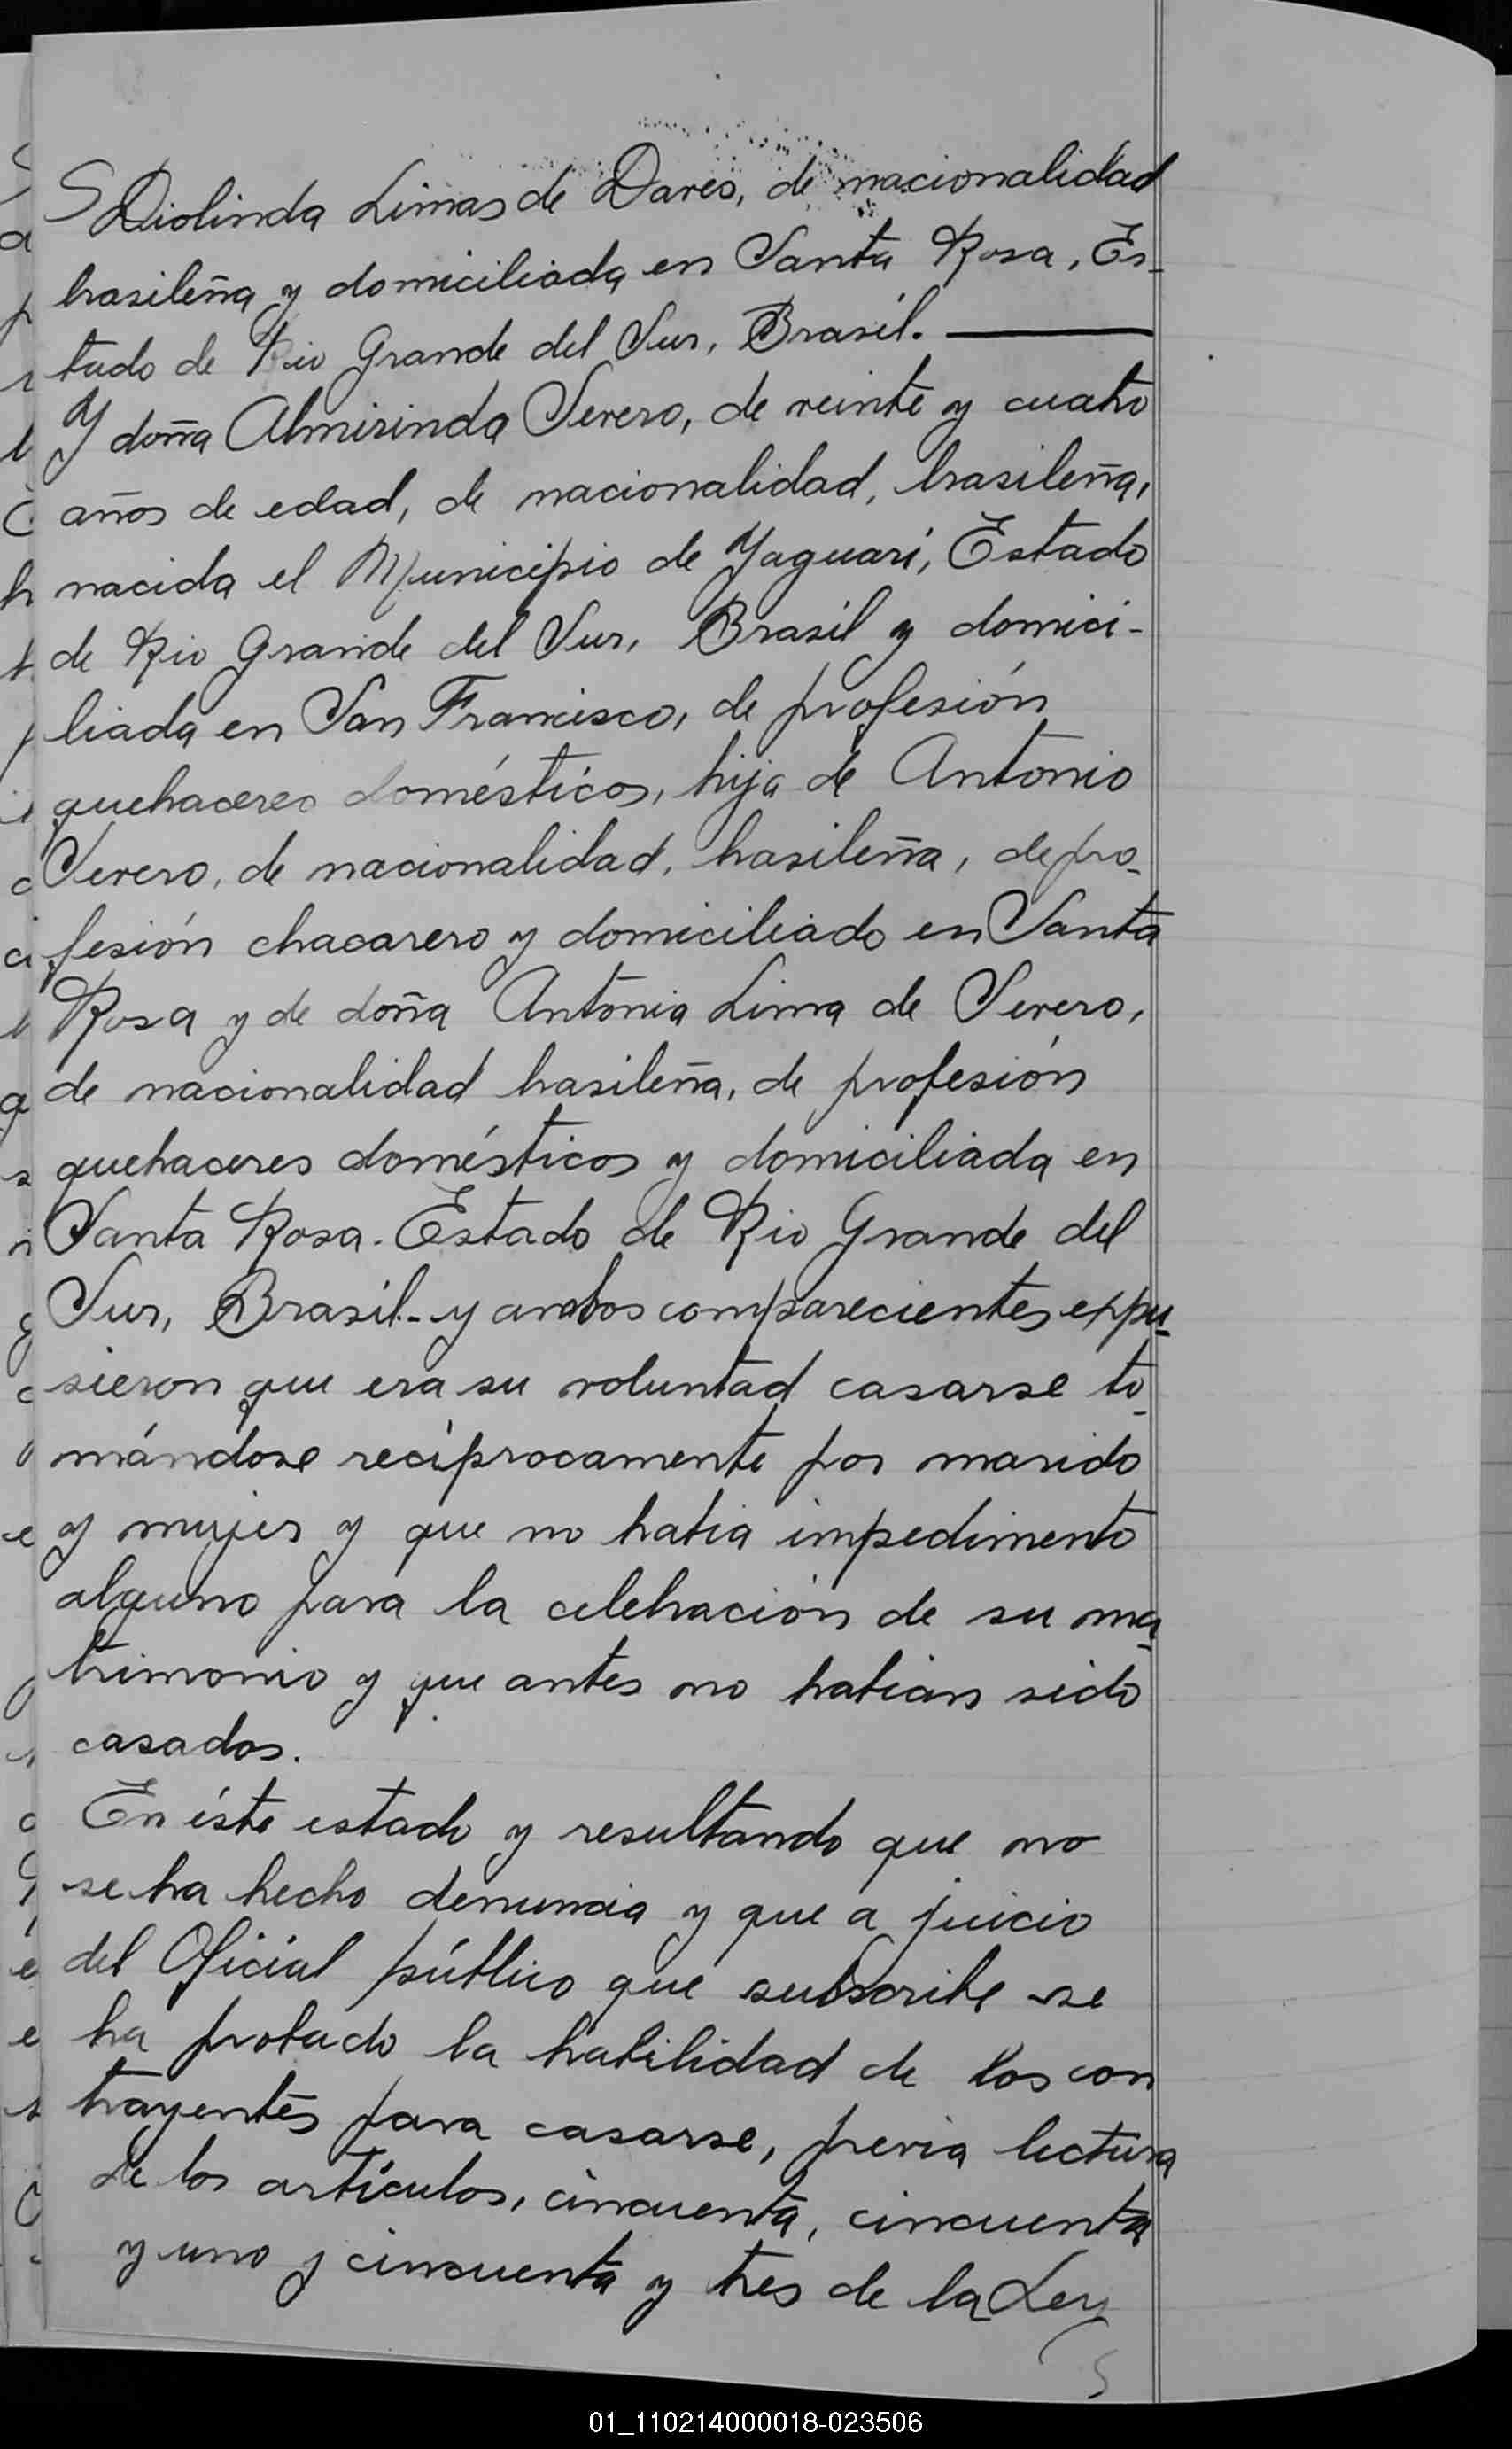 Diolinda Limas de Dares, de nacionalidad
brasileña y domiciliada en Santa Rosa, Es-
tado de Rio Grande del Sur, Brasil.
Y doña Almirinda Severo, de veinte y cuatro
años de edad, de nacionalidad, brasileña,
nacida el Municipio de Yaguari, Estado
de Rio Grande del Sur, Brasil y domici-
liada en San Francisco, de profesión
quehaceres domésticos, hija de Antonio
Severo, de nacionalidad, brasileña, de pro-
fesión chacarero y domiciliado en Santa
Rosa y de doña Antonia Lima de Severo,
de nacionalidad brasileña, de profesión
quehaceres domésticos y domiciliada en
Santa Rosa. Estado de Rio Grande del
Sur, Brasil.- y ambos comparecientes expu-
sieron que era su voluntad casarse to-
mándose recíprocamente por marido
y mujer y que no había impedimento
alguno para la celebración de su ma-
trimonio y que antes no habían sido
casados.
En éste estado y resultando que no
se ha hecho denuncia y que a juicio
del Oficial público que subscribe se
ha probado la habilidad de los con
trayentes para casarse, previa lectura
de los artículos, cincuenta, cincuenta
y uno y cincuenta y tres de la Ley
01_110214000018-023506